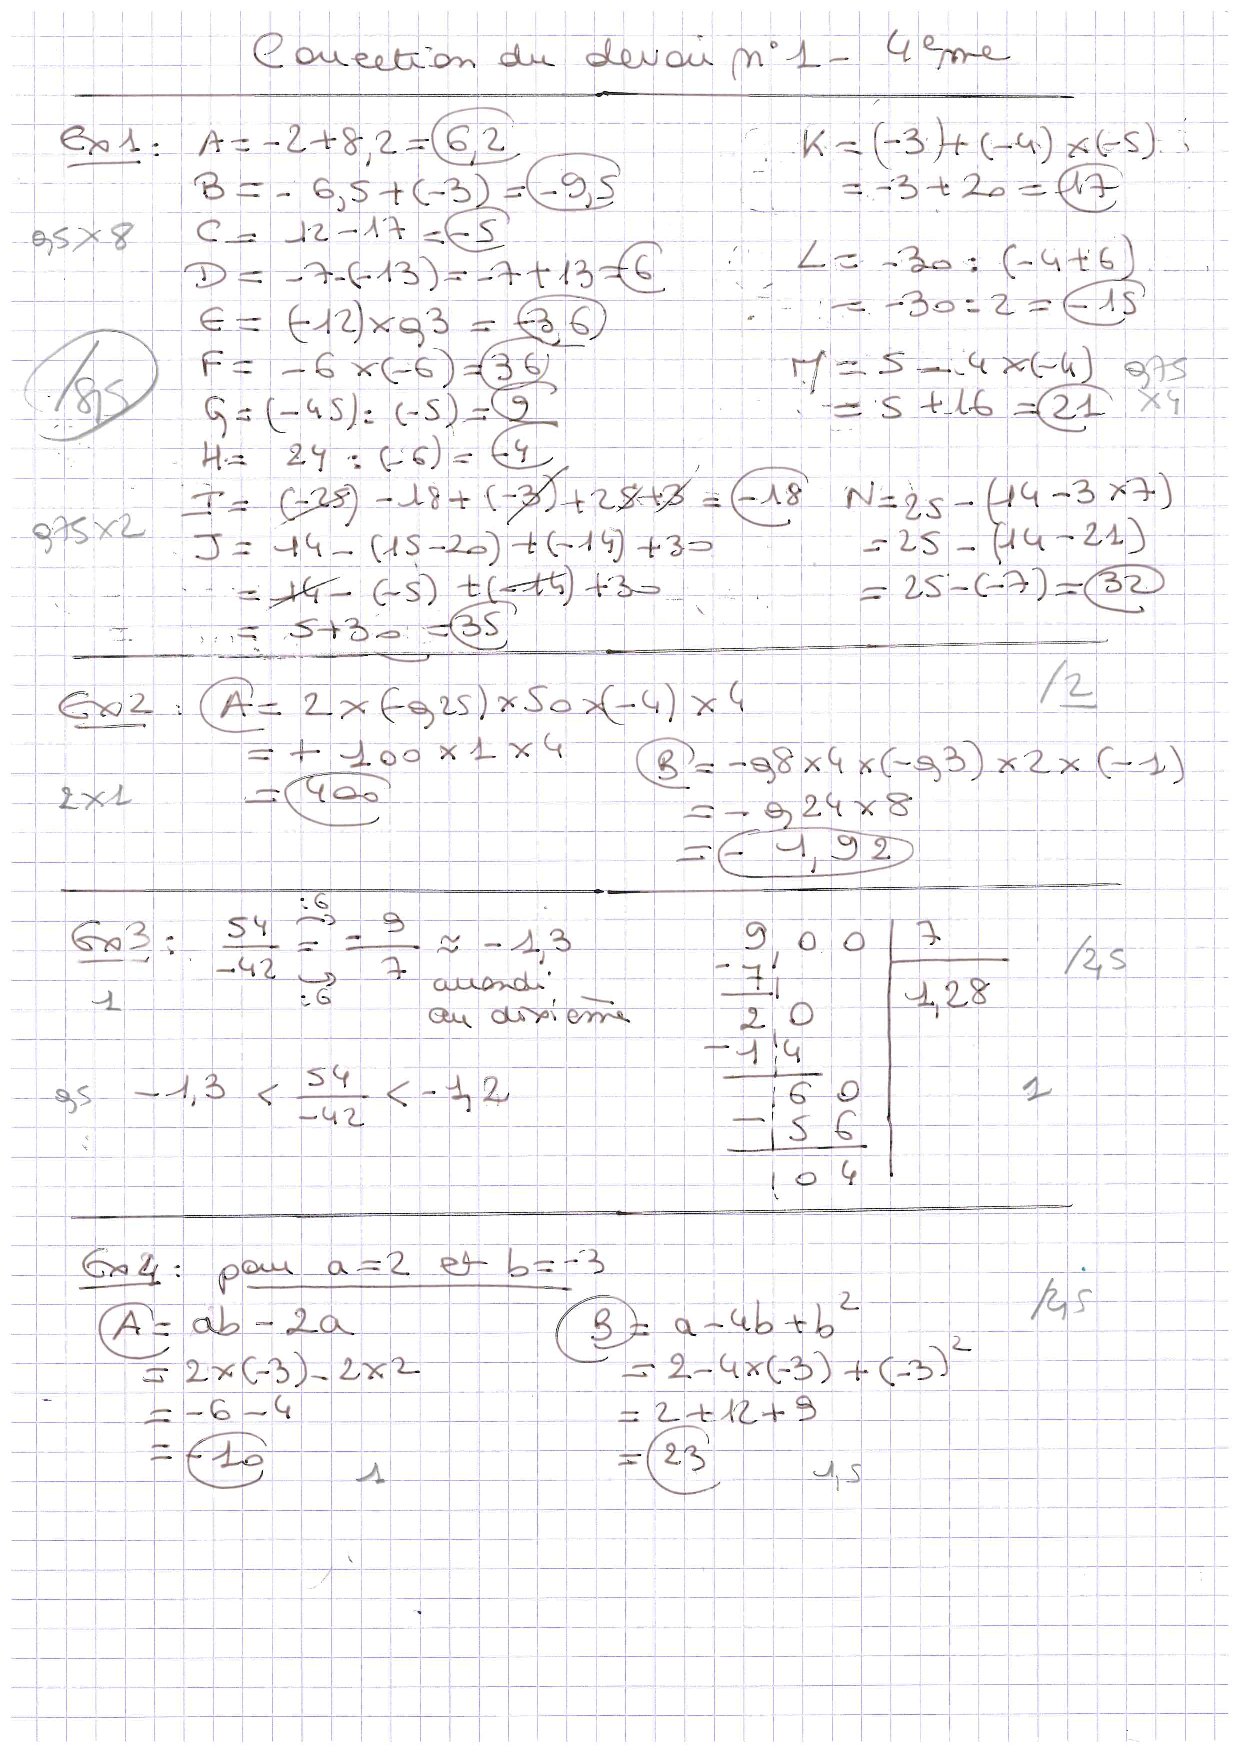 Correction du devoir n°1 - 4ème
Ex1: A = -2+8,2 = 6,2
B = - 6,5+(-3) = -9,5
0,5 x 8
C = 12-17 = -5
D = -7-(-13) = -7+13 = 6
E = (-12) x 0,3 = -3,6
F = -6 x (-6) = 36
/8,5
G = (-45) : (-5) = 9
H = 24 : (-6) = -4
I = (-25) - 18 + (-3) + 25 + 3 = -18
0,75 x 2
J = 14 - (15-20) + (-14) + 30
= 14 - (-5) + (-14) + 30
= 5+30 = 35
K = (-3) + (-4) x (-5)
= -3 + 20 = 17
L = -30 : (-4+6)
= -30 : 2 = -15
M = 5 - 4 x (-4) 0,75
= 5 + 16 = 21 x4
N = 25 - (14 - 3 x 7)
= 25 - (14 - 21)
= 25 - (-7) = 32
Ex2 : A = 2 x (-0,25) x 50 x (-4) x 4 /2
= + 100 x 1 x 4
2 x 1 = 400
B = -0,8 x 4 x (-0,3) x 2 x (-1)
= - 0,24 x 8
= - 1,92
Ex3 : 54/-42 = -9/7 ≈ -1,3
:6
:6
arrondi
au dixième
1
0,5 -1,3 < 54/-42 < -1,2
9,00 | 7
- 7 1,28
2 0
- 1 4
6 0
- 5 6
0 4
/2,5
1
Ex4 : pour a = 2 et b = -3
/2,5
A = ab - 2a
= 2 x (-3) - 2 x 2
= -6 - 4
= -10
1
B = a - 4b + b²
= 2 - 4 x (-3) + (-3)²
= 2 + 12 + 9
= 23
1,5